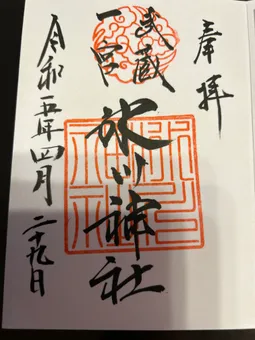 奉拝
武蔵
一宮
氷川神社
令和五年四月二十九日